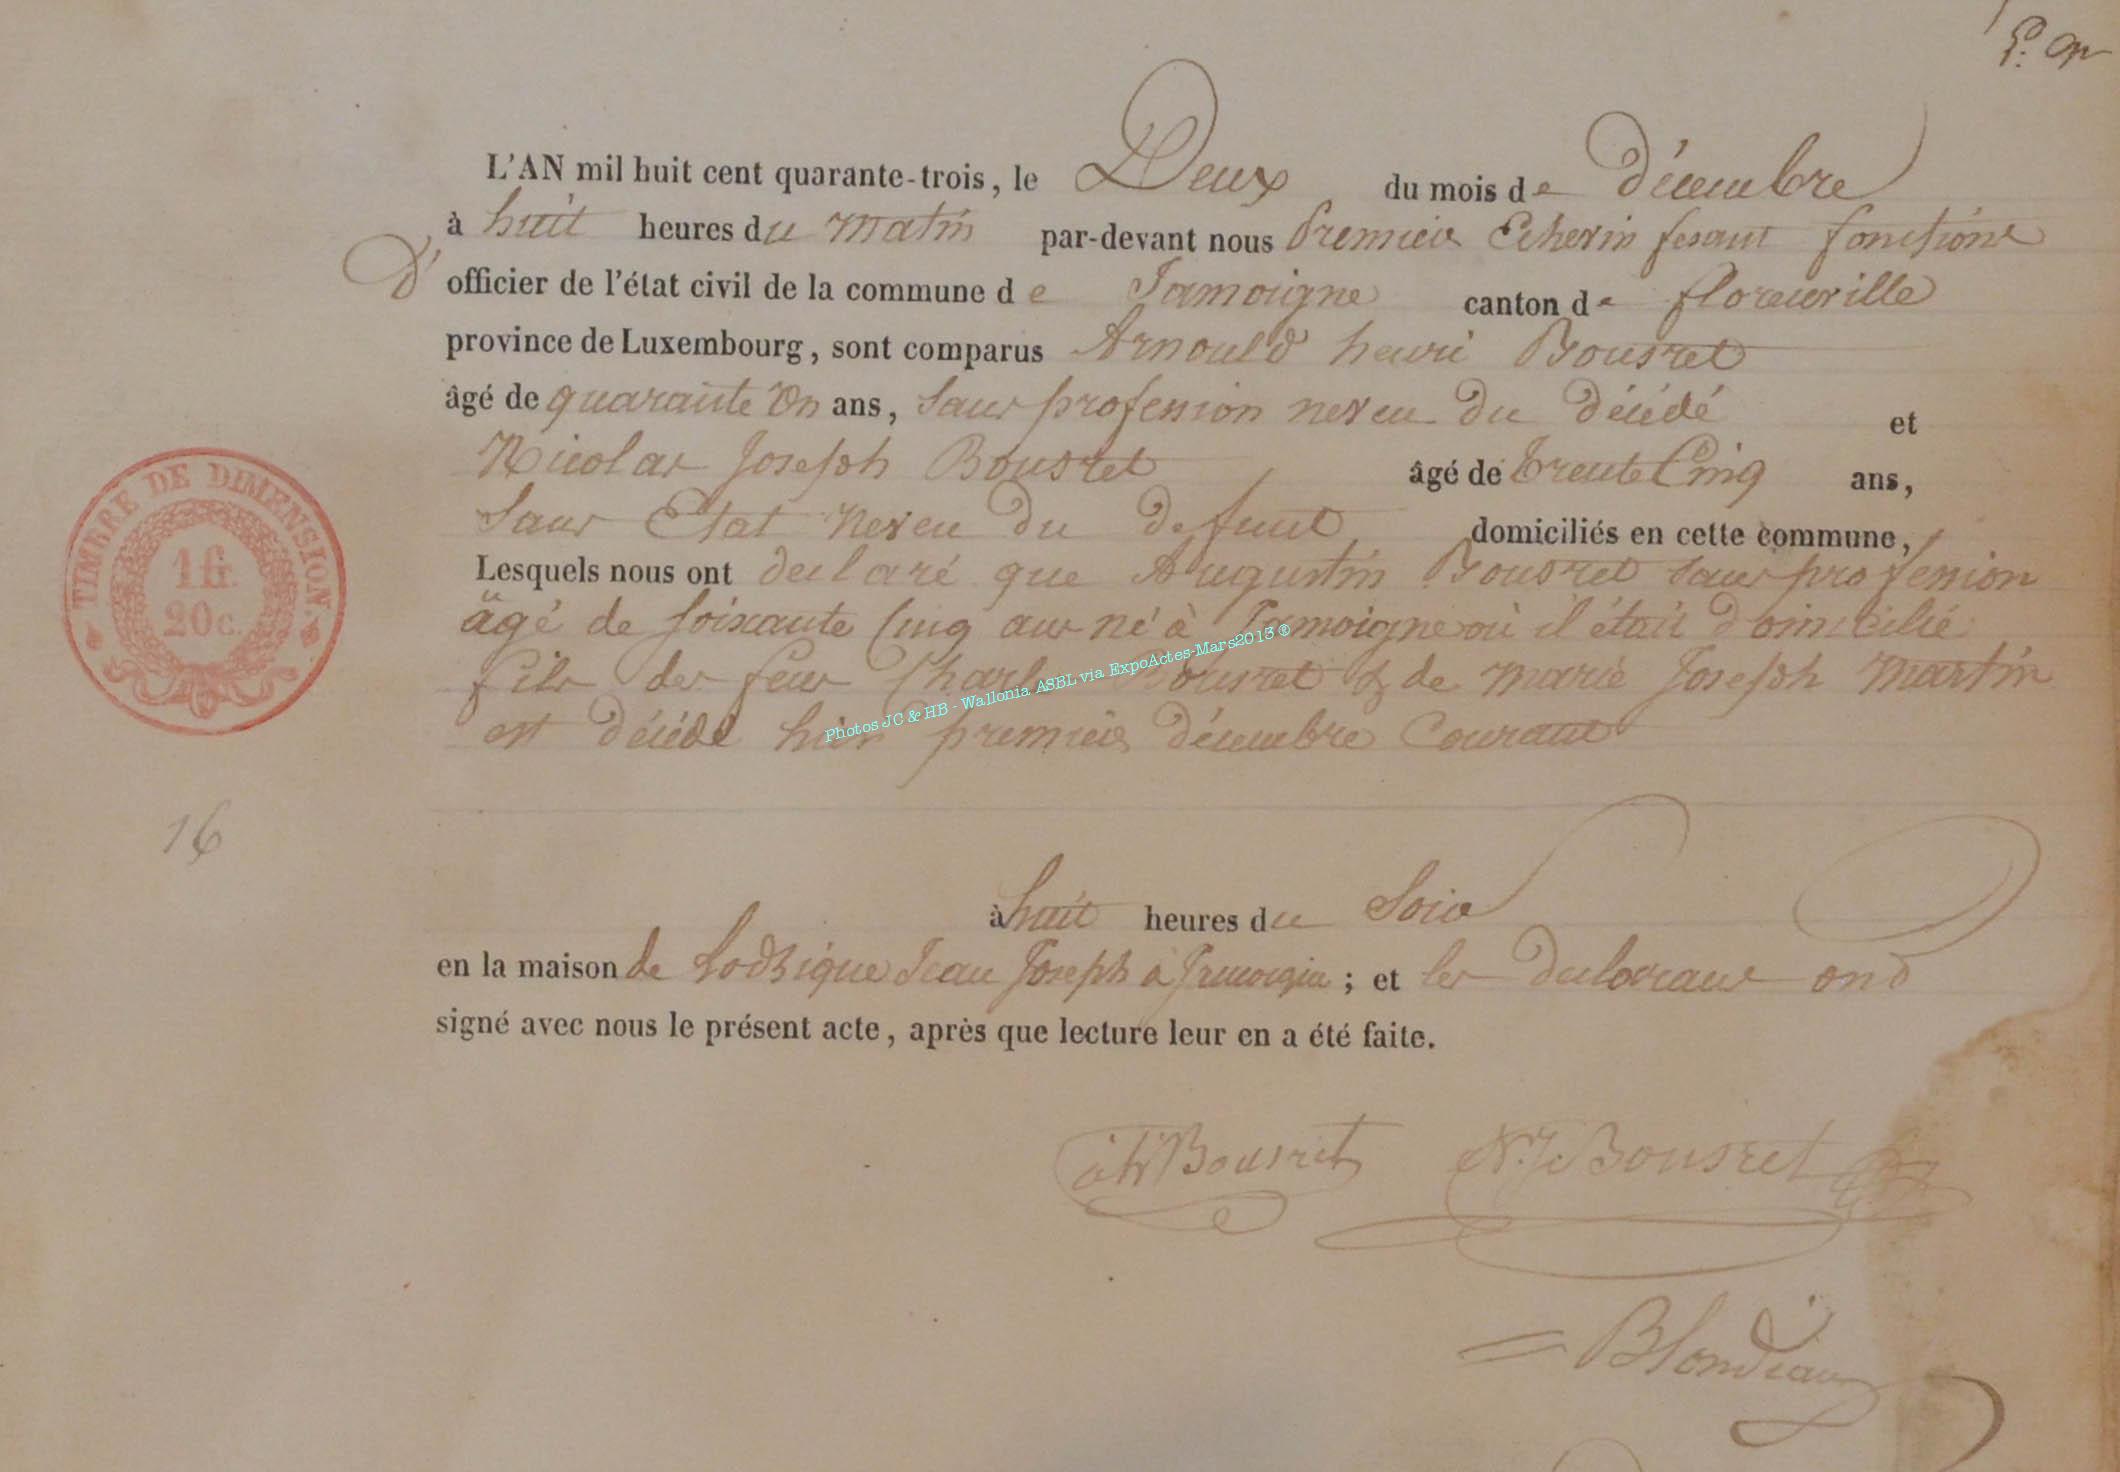 L'AN mil huit cent quarante-trois, le Deux du mois de décembre
à huit heures du matin par-devant nous Premier Echevin fesant fonctions
D' officier de l'état civil de la commune de Jamoigne canton de florenville
province de Luxembourg, sont comparus Arnould henri Bousret
âgé de quarante un ans, sans profession neveu du décédé et
Nicolas Joseph Bousret âgé de trente cinq ans,
sans Etat neveu du defunt domiciliés en cette commune,
Lesquels nous ont declaré que Augustin Bousret sans profession
âgé de soixante cinq ans né à Jamoigne où il était domicilié
fils des feus Charles Bousret & de marie Joseph martin
est décédé hier premier décembre courant
à huit heures du soir
en la maison de Lodsigue Jean Joseph à Jamoigne ; et les declarans ond
signé avec nous le présent acte, après que lecture leur en a été faite.
ah Bousret N. J. Bousret
Blondiau
TIMBRE DE DIMENSION.
1 fr.
20 c.
16
Photos JC & HB - Wallonia ASBL via ExpoActes-Mars2013 ®